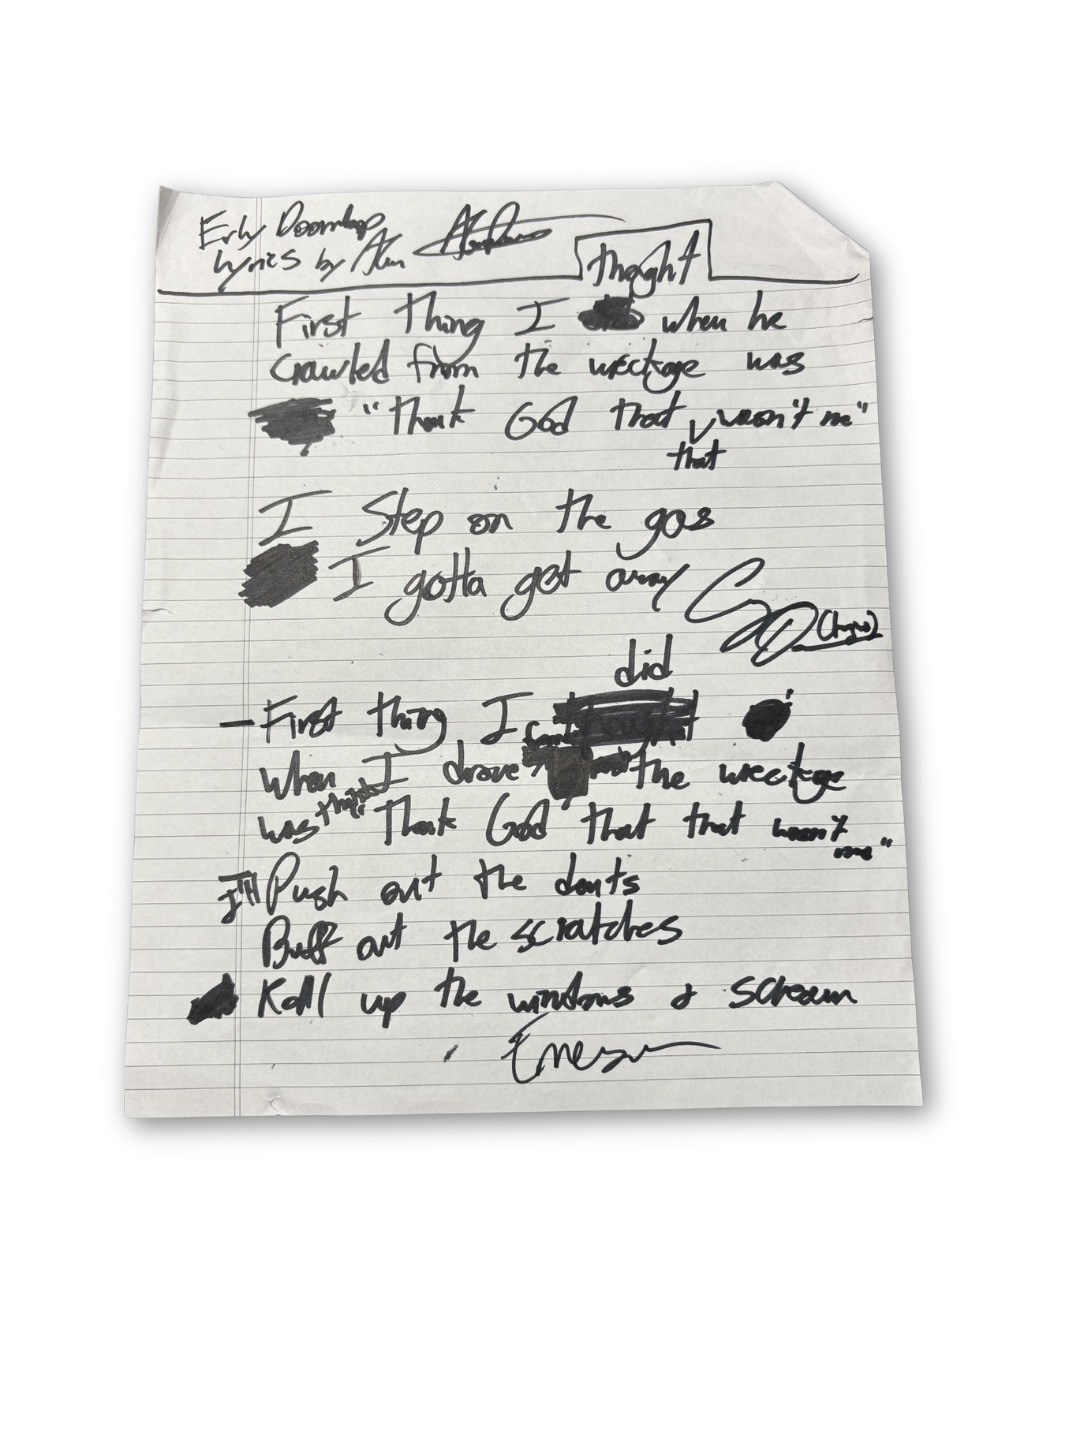 Erly Doomloop
Lyrics by Alan
thoght
First thing I when he
crawled from the wreckage was
"thank God that wasn't me"
that
I Step on the gas
I gotta get away
did
- First thing I
When I drove the wreckage
was Thank God that that wasn't
me"
I'll Push out the dents
Buff out the scratches
Roll up the windows & scream